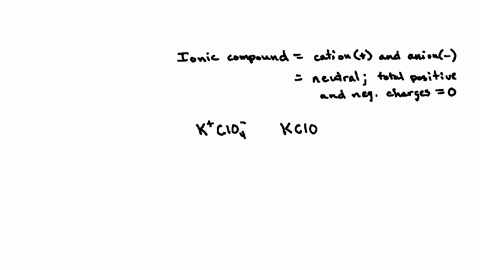 Ionic compound = cation(+) and anion(-)
= neutral; total positive
and neg. charges = 0
K⁺ClO₄⁻ KClO